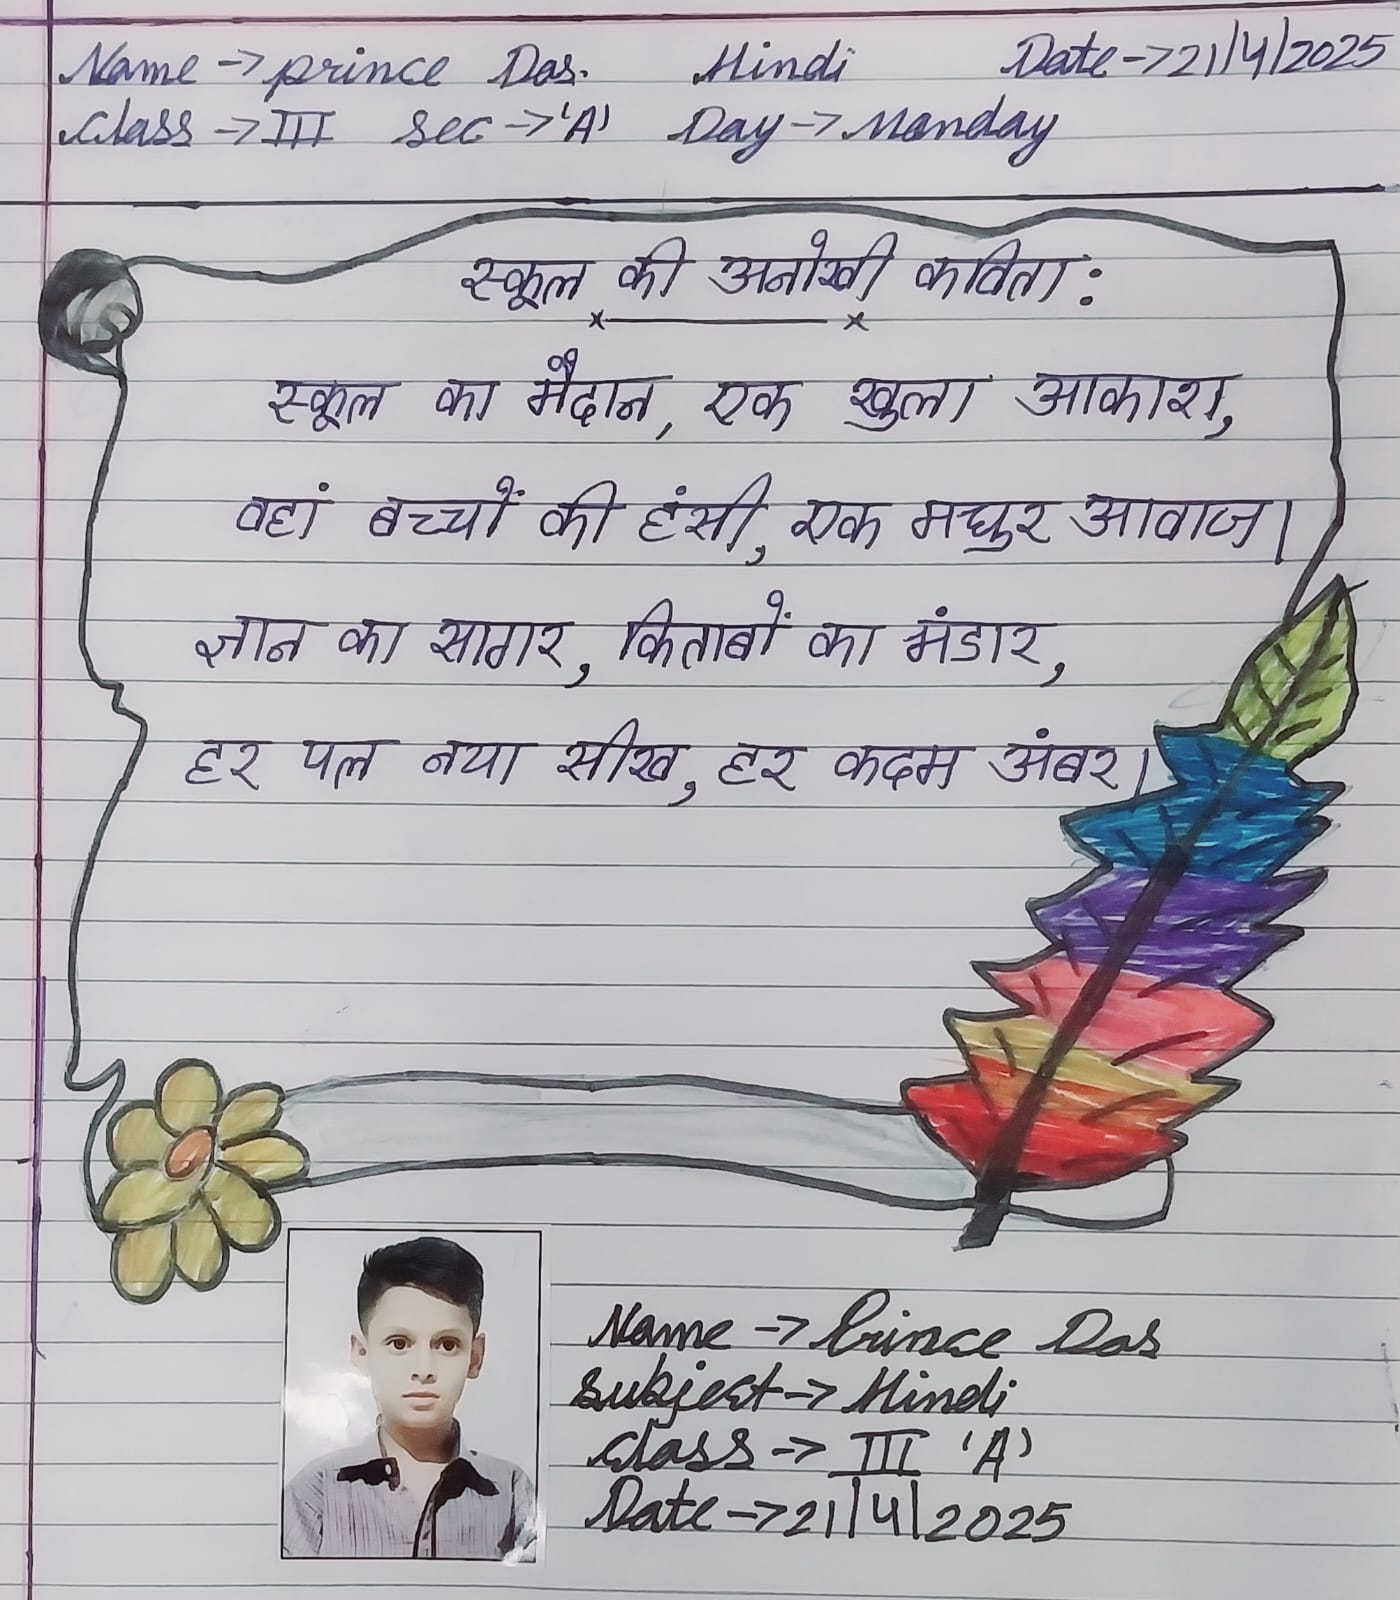 Name → prince Das. Hindi Date → 21/4/2025
Class → III sec → 'A' Day → Monday
स्कूल की अनोखी कविता:
स्कूल का मैदान, एक खुला आकाश,
वहां बच्चों की हंसी, एक मधुर आवाज।
ज्ञान का सागर, किताबों का भंडार,
हर पल नया सीख, हर कदम अंबर।
Name → Prince Das
Subject → Hindi
Class → III 'A'
Date → 21/4/2025